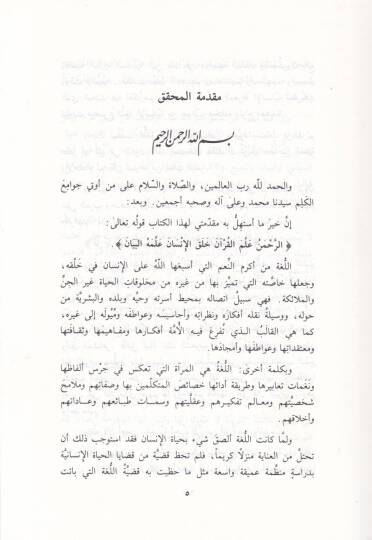 مقدمة المحقق
بسم الله الرحمن الرحيم
والحمد للّه رب العالمين، والصّلاة والسّلام على من أوتي جوامعَ
الكَلِم سيدنا محمد وعلى آله وصحبه أجمعين. وبعد:
إنَّ خيرَ ما أستهلُّ به مقدّمتي لهذا الكتاب قولُه تعالى:
﴿ الرَّحْمٰنُ عَلَّمَ القُرْآنَ خَلَقَ الإنْسَانَ عَلَّمَهُ البَيَانَ ﴾.
اللُّغة من أكرم النِّعم التي أسبغها اللّهُ على الإنسان في خَلْقه،
وجعلها خاصّته التي تميَّز بها من غيره من مخلوقاتِ الحياة غير الجنِّ
والملائكة. فهي سبيلُ اتصاله بمحيط أسرته وحيِّه وبلده والبشريَّة من
حوله، ووسيلةُ نقله أفكارَه ونظراتِه وأحاسيسَه وعواطفَه ومُيُولَه إلى غيره،
كما هي القالبُ الذي تُفرِغ فيه الأُمَّة أفكارها ومفاهيمَها وثقافتَها
ومعتقداتِها وعواطفَها وأمجادَها.
وبكلمة أخرى: اللُّغةُ هي المرآة التي تعكس في جَرْس ألفاظها
ونَغَمات تعابيرها وطريقة أدائها خصائصَ المتكلِّمين بها وصفاتِهم وملامحَ
شخصيَّتهم ومعالم تفكيرهم وعقليَّتهم وسمات طبائعهم وعاداتهم
وأخلاقهم.
ولمَّا كانت اللُّغة ألصقَ شيء بحياة الإنسان فقد استوجب ذلك أن
تحتلَّ من العناية منزلًا كريماً، فلم تحظ قضيَّة من قضايا الحياة الإنسانيَّة
بدراسةٍ منظَّمة عميقة واسعة مثل ما حظيت به قضيَّةُ اللُّغة التي باتت
٥